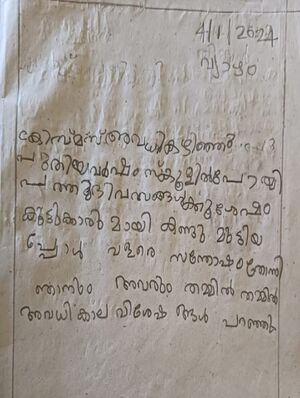 4/1/2024
വ്യാഴം
ക്രിസ്മസ് അവധികഴിഞ്ഞു
പുതിയവർഷം സ്കൂളിൽ പോയി
പത്തുദിവസങ്ങൾക്കുശേഷം
കൂട്ടുകാരുമായി കണ്ടുമുട്ടിയ
പ്പോൾ വളരെ സന്തോഷംതോന്നി
ഞാനും അവരും തമ്മിൽ തമ്മിൽ
അവധികാല വിശേഷങ്ങൾ പറഞ്ഞു